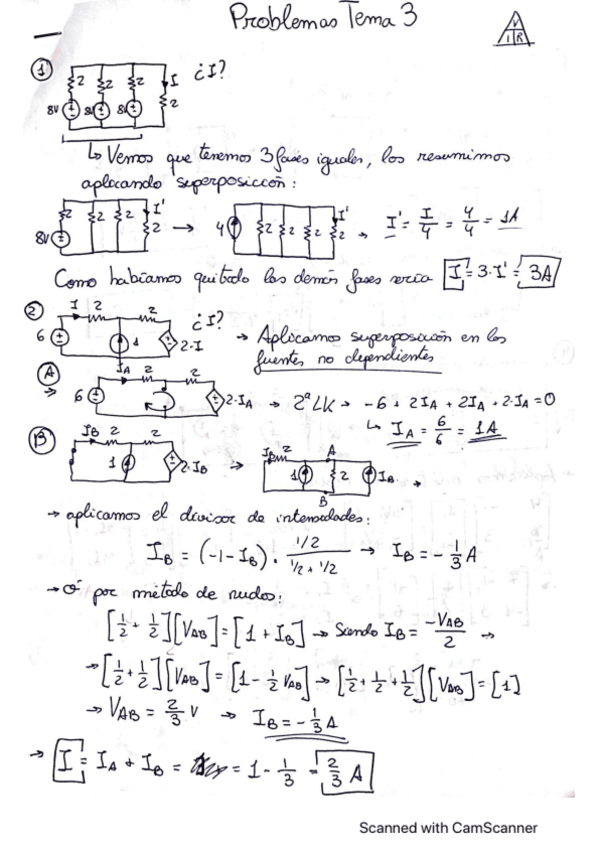 Problemas Tema 3
V
I R
1 ¿I?
2 2 2 I 2
8V 8V 8V
↳ Vemos que tenemos 3 fases iguales, los resumimos
aplicando superposición:
2 2 2 I' 2 → 4 2 2 2 I' 2 → I' = I/4 = 4/4 = 1A
8V
Como habíamos quitado las demás fases sería I = 3·I' = 3A
2 I 2 2 ¿I?
6 1 2·I → Aplicamos superposición en las
fuentes no dependientes
A IA 2 2
⇒ 6 2·IA → 2ª LK → -6 + 2IA + 2IA + 2·IA = 0
↳ IA = 6/6 = 1A
B IB 2 2
1 2·IB → IB 2 A 1 2 IB →
B
→ aplicamos el divisor de intensidades:
IB = (-1-IB) · (1/2)/(1/2 + 1/2) → IB = -1/3 A
→ Ó por método de nudos:
[1/2 + 1/2][VAB] = [1 + IB] → Siendo IB = -VAB/2 →
→ [1/2 + 1/2][VAB] = [1 - 1/2 VAB] → [1/2 + 1/2 + 1/2][VAB] = [1]
→ VAB = 2/3 V → IB = -1/3 A
→ I = IA + IB = = 1 - 1/3 = 2/3 A
Scanned with CamScanner